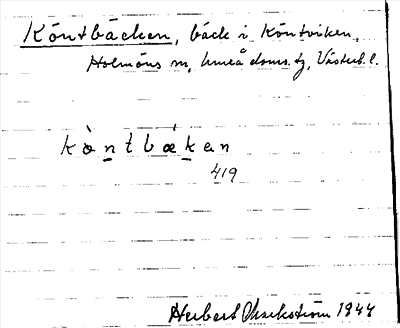 Köntbäcken, bäck i Köntviken,
Holmöns sn, Umeå doms. tg, Västerb. l.
kòntbǽken
419
Herbert 1944